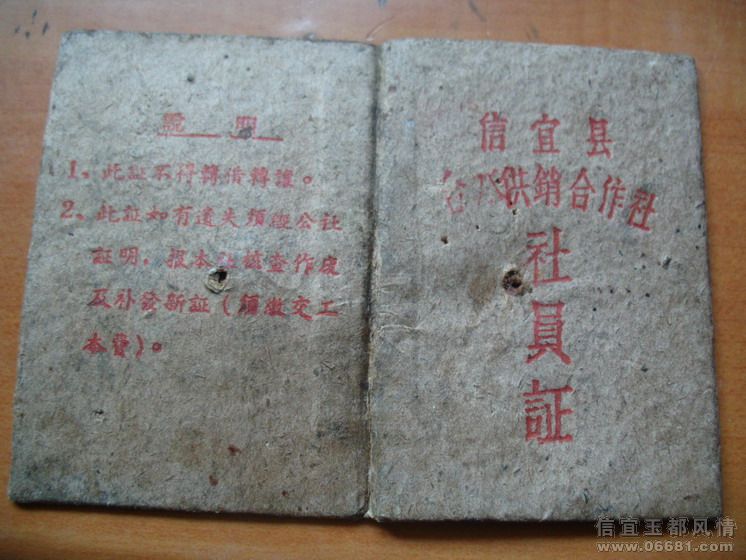 說明
1、此証不得轉借轉讓。
2、此証如有遺失須經公社
証明，报本社核查作废
及补發新証（須缴交工
本費）。
信宜县
供銷合作社
社員証
信宜玉都风情
www.06681.com